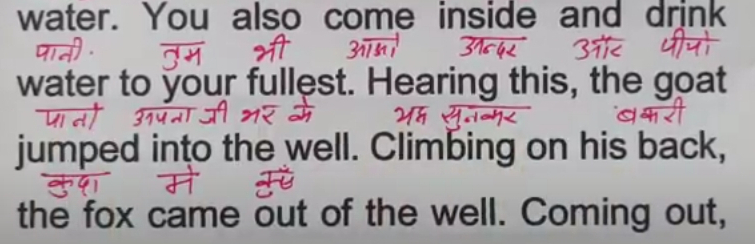 water. You also come inside and drink
पानी. तुम भी आओ अन्दर और पीयो
water to your fullest. Hearing this, the goat
पानी अपना जी भर के यह सुनकर बकरी
jumped into the well. Climbing on his back,
कुदा मे कुएँ
the fox came out of the well. Coming out,